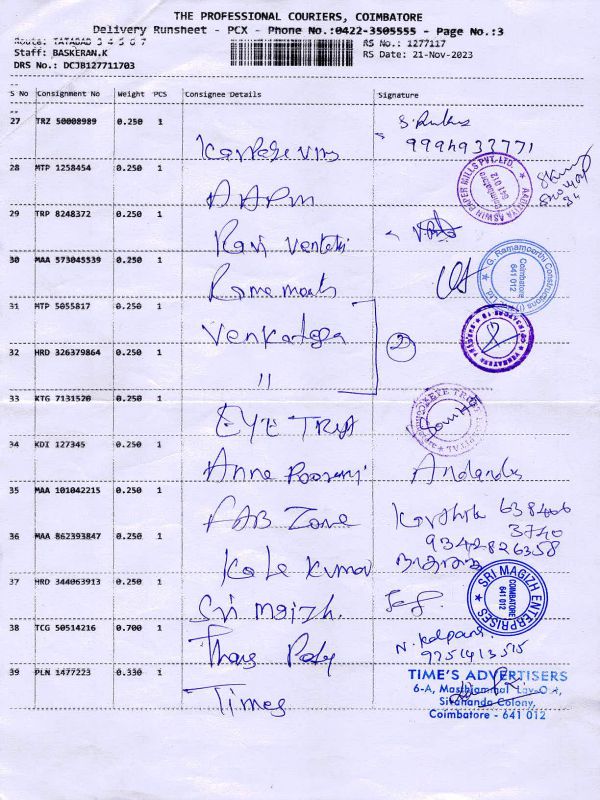 THE PROFESSIONAL COURIERS, COIMBATORE
Delivery Runsheet - PCX - Phone No.:0422-3505555 - Page No.:3
Route: TATABAD 3 4 5 6 7
RS No.: 1277117
Staff: BASKERAN.K
RS Date: 21-Nov-2023
DRS No.: DCJB127711703
S No Consignment No Weight PCS Consignee Details Signature
27 TRZ 50008989 0.250 1
9994933771
28 MTP 1258454 0.250 1
AAPM
AADHYA ASWIN PAPER MILLS PVT. LTD.
Coimbatore
641 012
29 TRP 8248372 0.250 1
Ravi Venkatesh
30 MAA 573045539 0.250 1
G. Ramamoorthi Constructions (I)
Coimbatore
641 012
31 MTP 5055817 0.250 1
Venkatesa
2
32 HRD 326379864 0.250 1
"
33 KTG 7131520 0.250 1
EYE Trust
34 KDI 127345 0.250 1
Anna Poorani
35 MAA 101042215 0.250 1
FAB Zone
Karthik 638406
3740
36 MAA 862393847 0.250 1
Kala Kumar
9342826358
37 HRD 344063913 0.250 1
Sri Magizh.
SRI MAGIZH ENTERPRISES
COIMBATORE
641 012
38 TCG 50514216 0.700 1
N. Kalpana
9751413515
39 PLN 1477223 0.330 1
Times
TIME'S ADVERTISERS
6-A, Masthiammal Lay-Out,
Sivananda Colony,
Coimbatore - 641 012